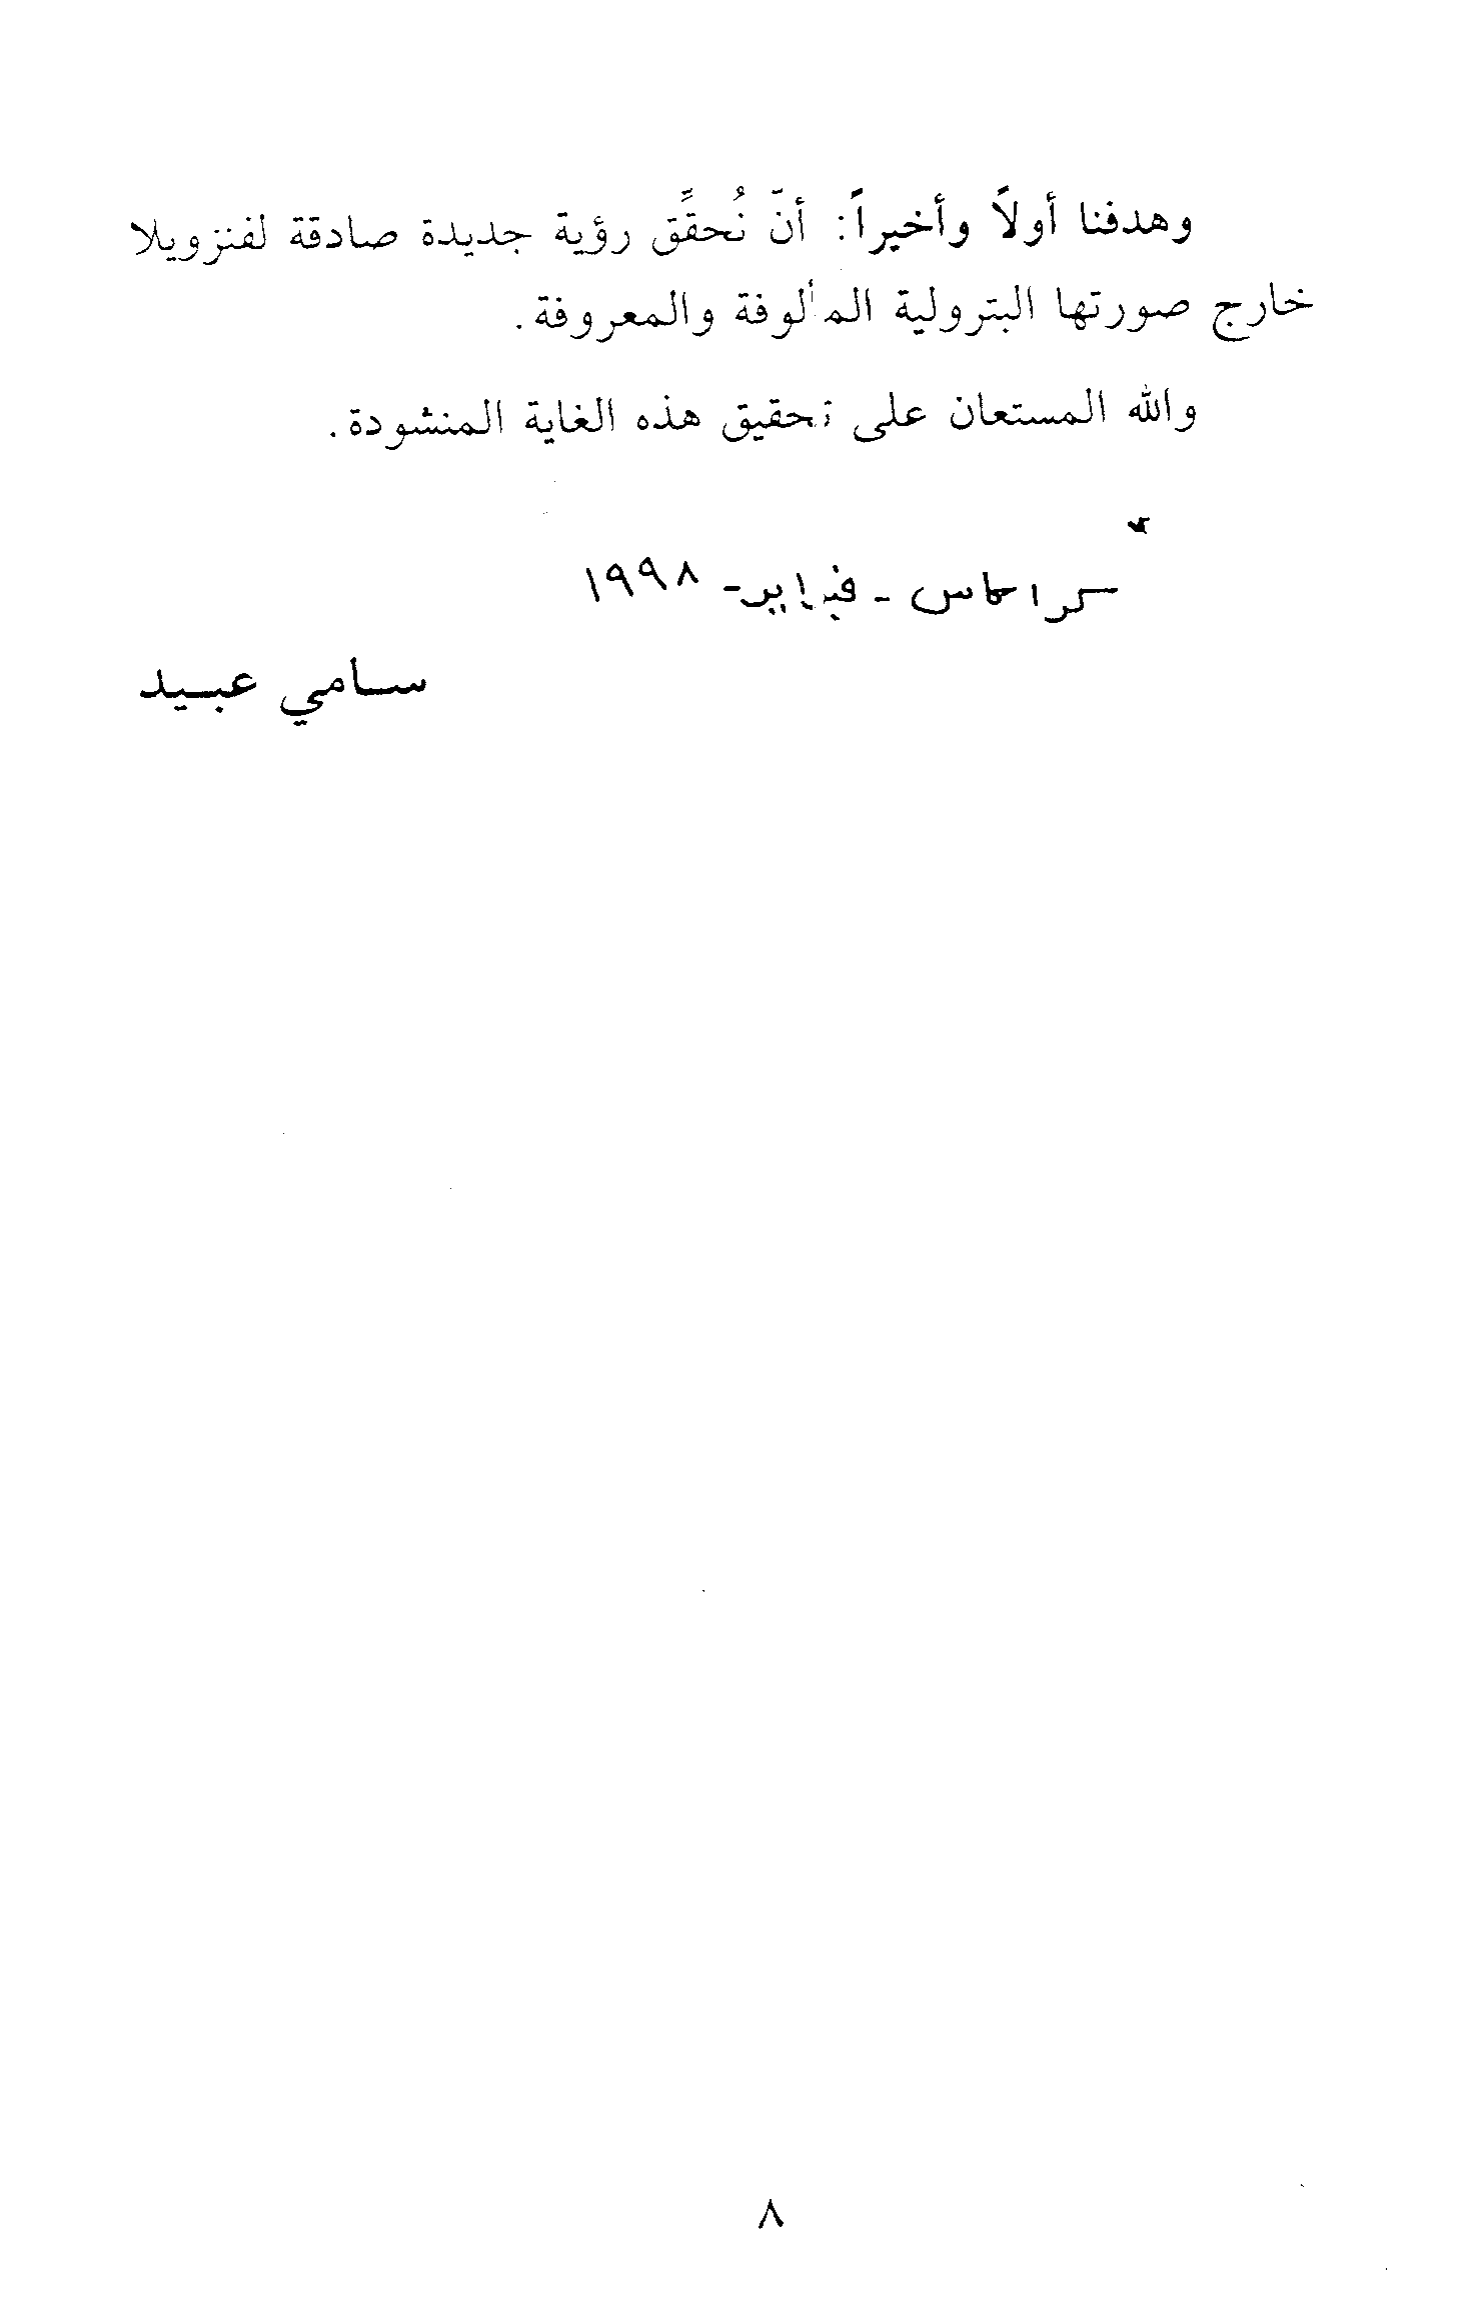 وهدفنا أولاً وأخيراً: أنّ نُحقِّق رؤية جديدة صادقة لفنزويلا
خارج صورتها البترولية المألوفة والمعروفة.
والله المستعان على تحقيق هذه الغاية المنشودة.
كراكاس - فبراير - ١٩٩٨
سامي عبيد
٨